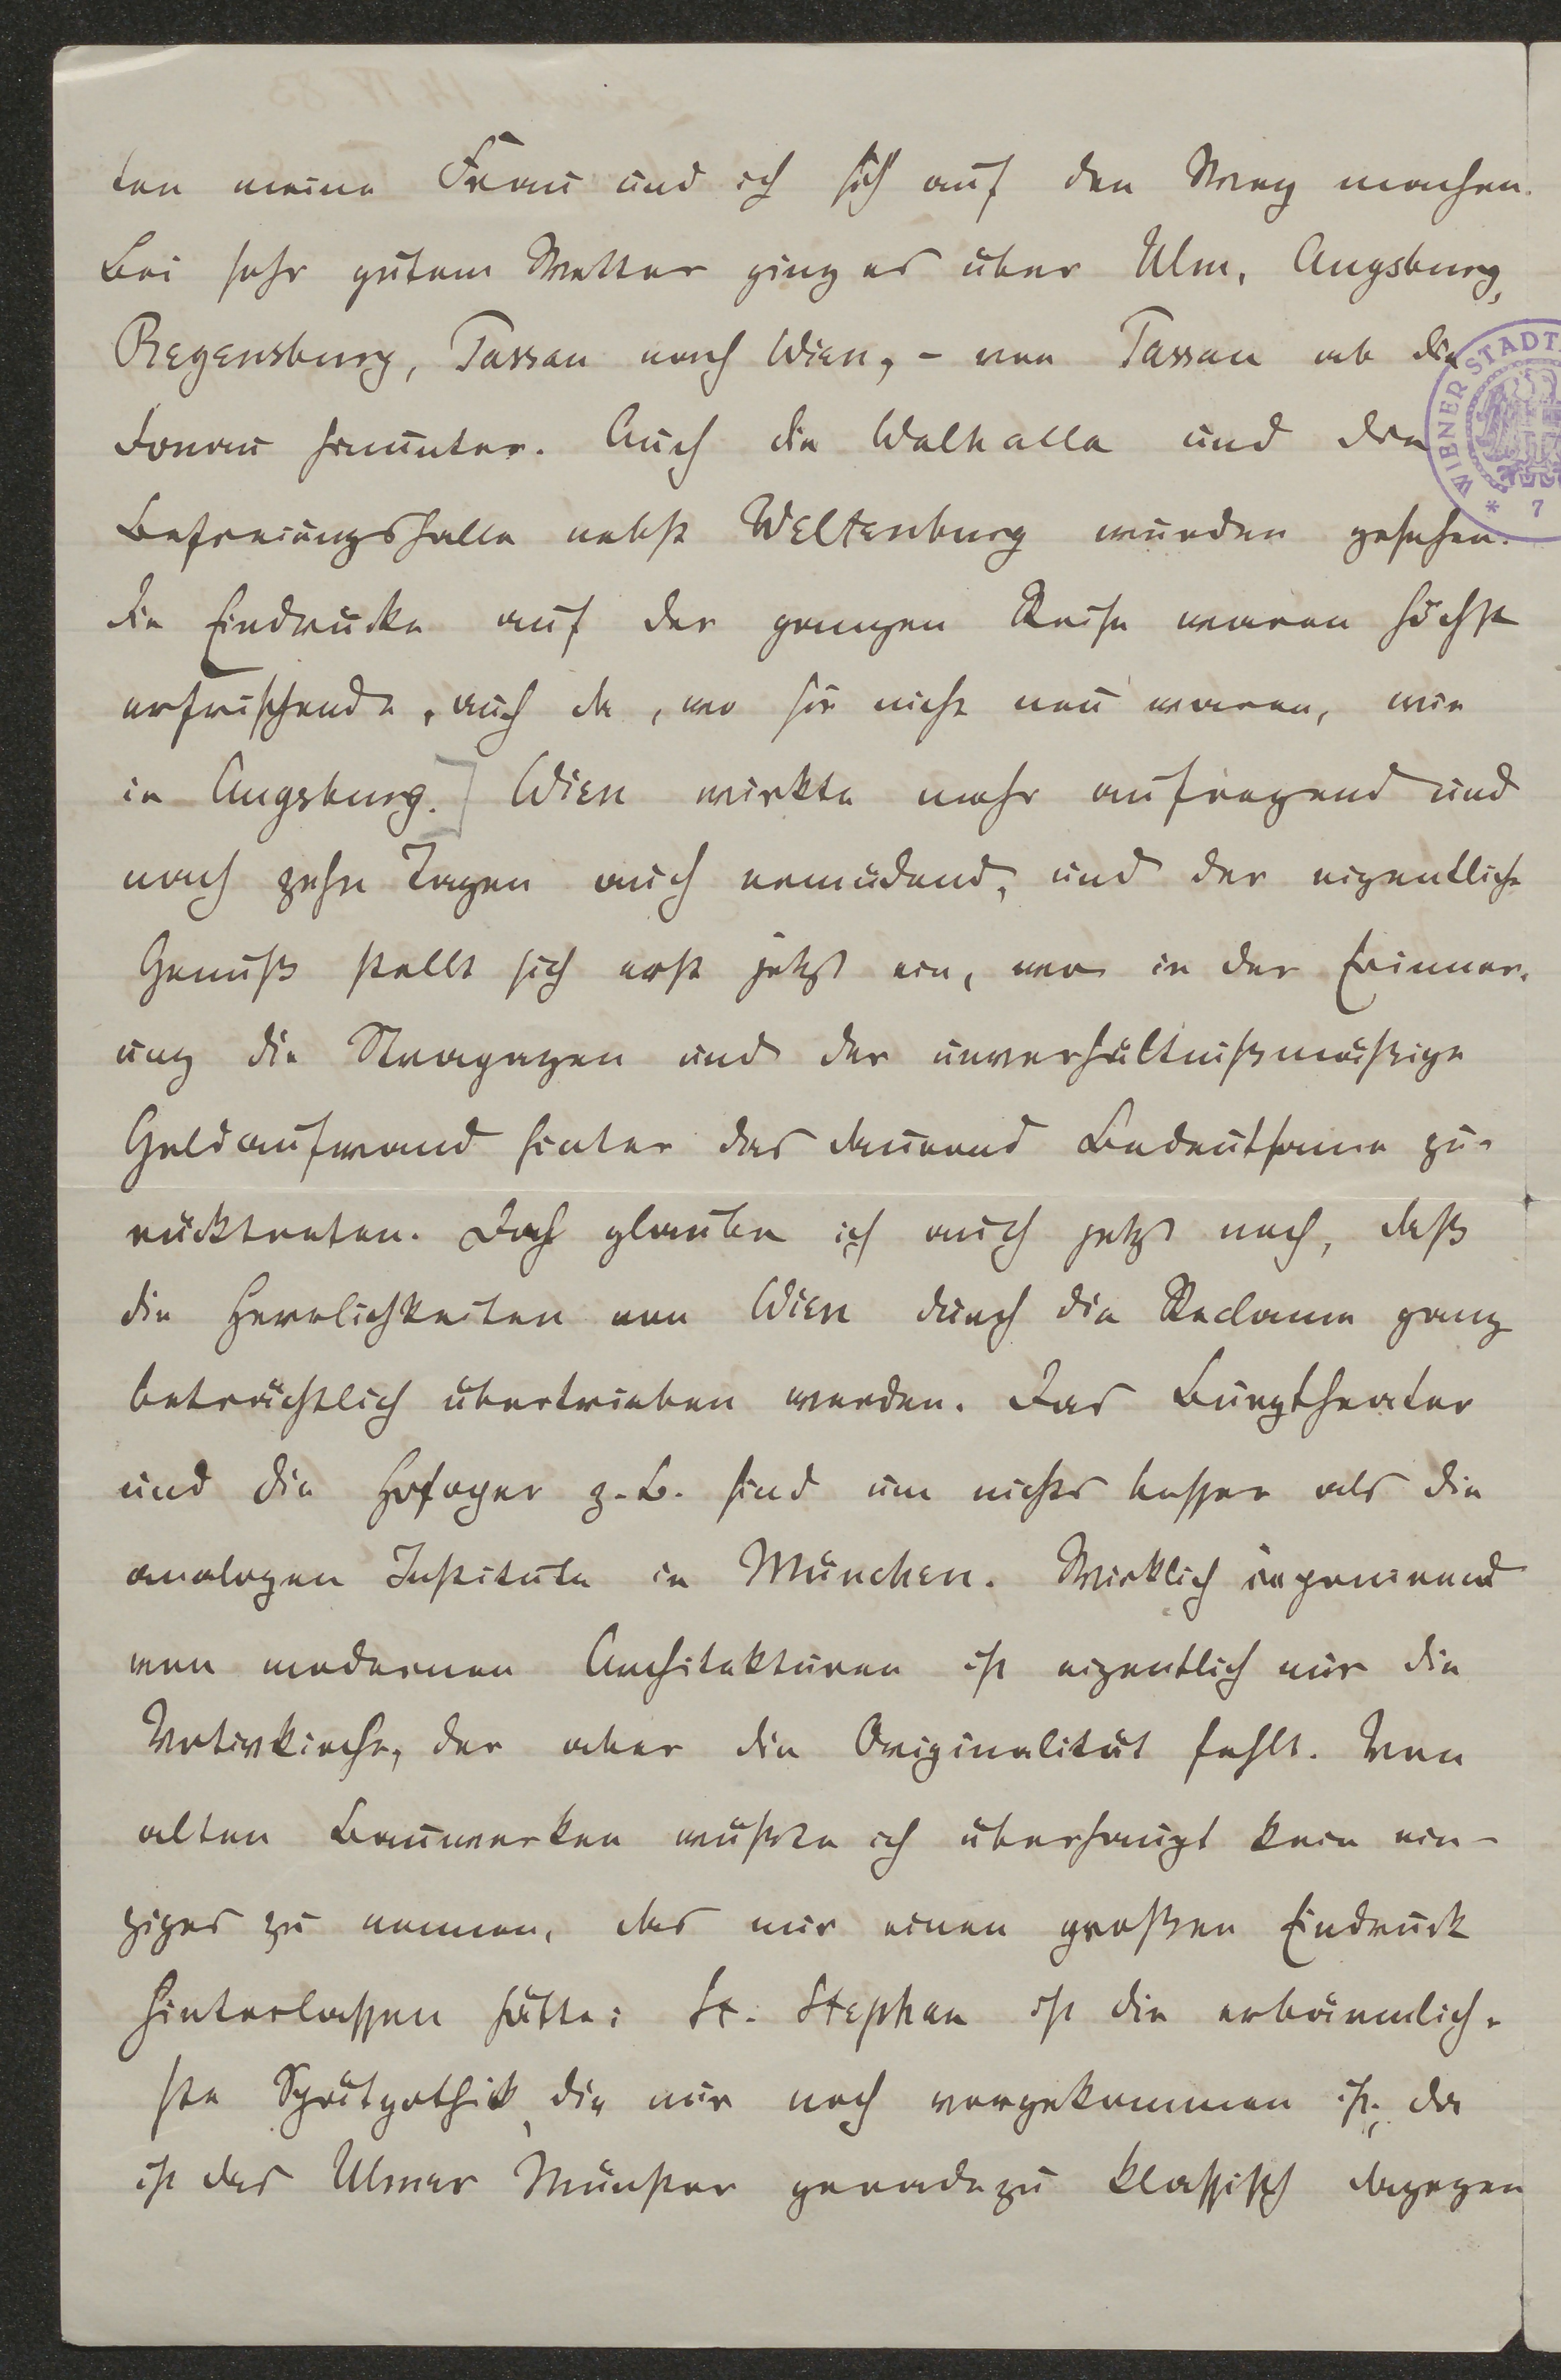 ten meine Frau und ich sich auf den Weg machen.
Bei sehr gutem Wetter ging es über Ulm, Augsburg,
Regensburg, Passau nach Wien, – von Passau ab die
Donau herunter. Auch die Walhalla und die
Befreiungshalle nebst Weltenburg wurden gesehen.
Die Eindrücke auf der ganzen Reise waren höchst
erfrischende, auch da, wo sie nicht neu waren, wie
in Augsburg.] Wien wirkte mehr aufregend und
nach zehn Tagen auch ermüdend, und der eigentliche
Genuß stellt sich erst jetzt ein, wo in der Erinner-
ung die Strapazen und der unverhältnißmäßige
Geldaufwand hinter das dauernd Bedeutsame zu-
rücktreten. Doch glaube ich auch jetzt noch, daß
die Herrlichkeiten von Wien durch die Reclame ganz
beträchtlich übertrieben werden. Das Burgtheater
und die Hofoper z. B. sind um nichts besser als die
analogen Institute in München. Wirklich imponirend
von modernen Architekturen ist eigentlich nur die
Votivkirche, der aber die Originalität fehlt. Von
alten Bauwerken wüßte ich überhaupt kein ein-
ziges zu nennen, das mir einen großen Eindruck
hinterlassen hätte: St. Stephan ist die erbärmlich-
ste Spätgothik, die mir noch vorgekommen ist; da
ist das Ulmer Münster geradezu klassisch dagegen
WIENER STADT
* 7